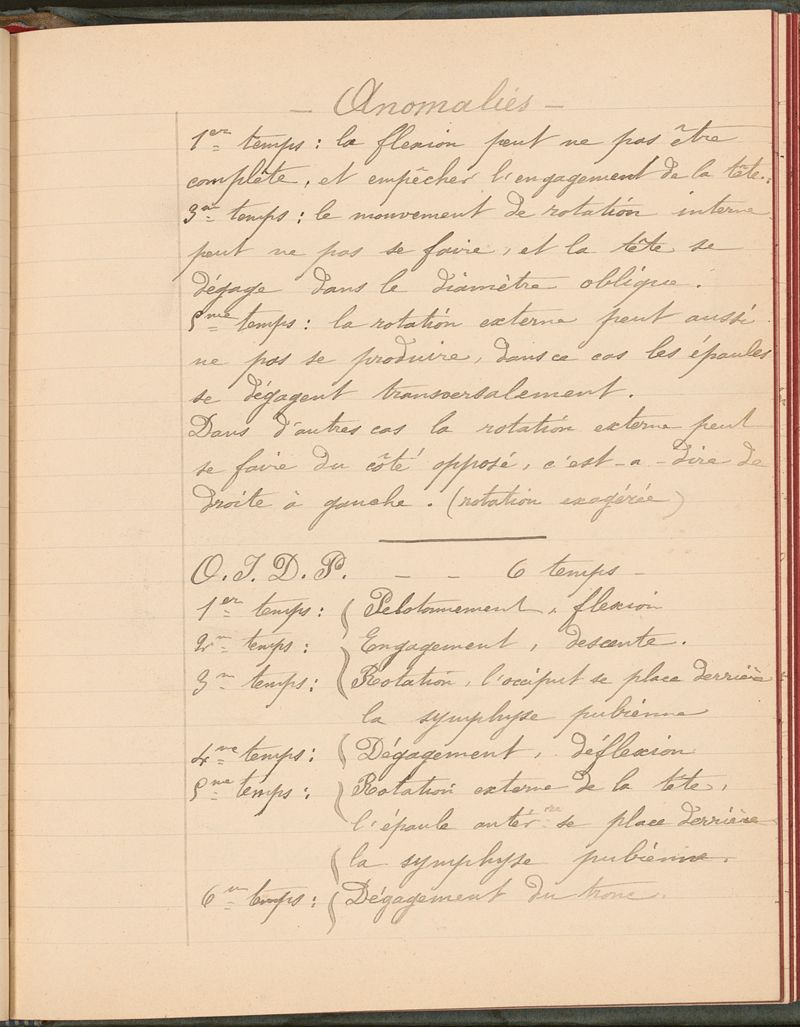 - Anomaliés -
1er temps : la flexion peut ne pas être
complête, et empêcher l'engagement de la tête.
3me temps : le mouvement de rotation interne
peut ne pas se faire, et la tête se
dégage dans le diamètre oblique.
5me temps : la rotation externe peut aussi
ne pas se produire, dans ce cas les épaules
se dégagent transversalement.
Dans d'autres cas la rotation externe peut
se faire du côté opposé, c'est-a-dire de
droite à gauche. (rotation exagérée)
O.I.D.P. - - 6 temps -
1er temps : Pelotonnement, flexion
2me temps : Engagement, descente.
3me temps : Rotation, l'occiput se place derrière
la symphyse pubienne
4me temps : Dégagement, déflexion
5me temps : Rotation externe de la tête,
l'épaule antérre se place derrière
la symphyse pubienne.
6me temps : Dégagement du tronc.